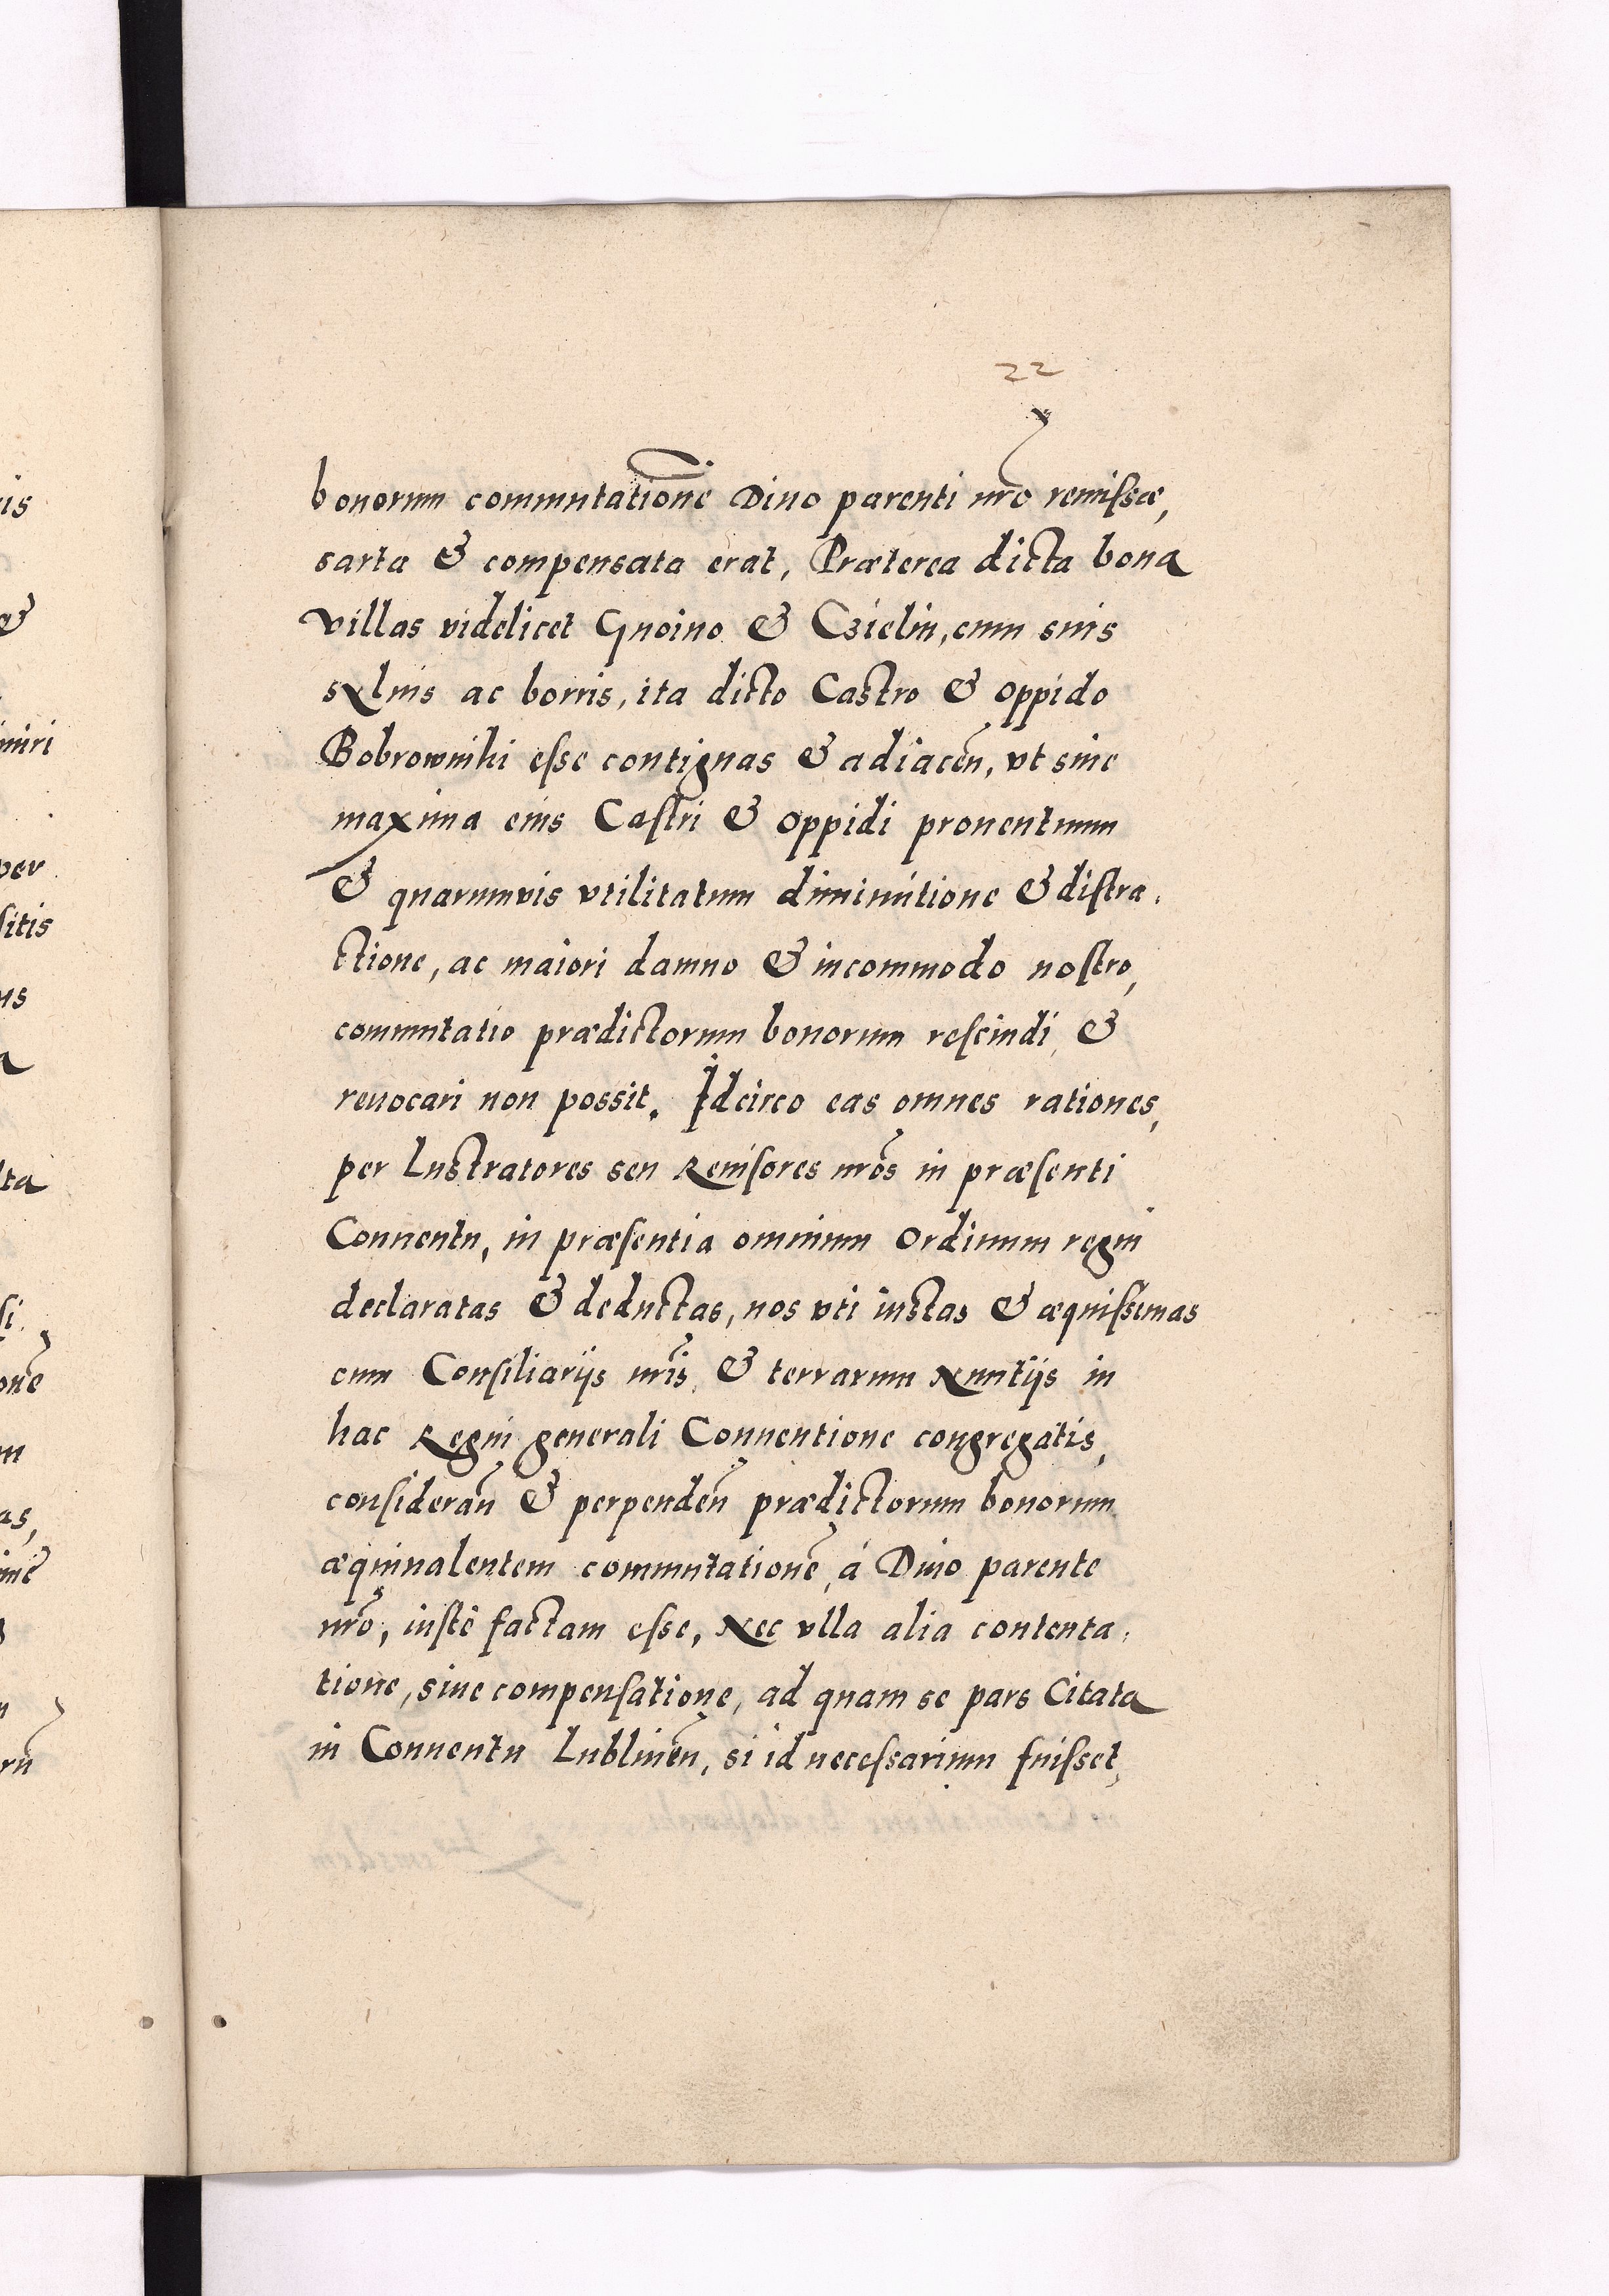 22
bonorum commutatione Diuo parenti nrō remiſsæ,
sarta & compensata erat, Præterea dicta bona
villas videlicet Gnoino & Czielin, cum suis
syluis ac borris, ita dicto Castro & oppido
Bobrowniki eſse contiguas & adiaceñ, vt sine
maxima eius Caſtri & oppidi prouentuum
& quarumvis vtilitatum diminutione & diſtra,
ctione, ac maiori damno & incommodo noſtro,
commutatio prædictorum bonorum reſcindi &
reuocari non possit. Idcirco eas omnes rationes,
per Lustratores seu Reuiſores nrōs in præſenti
Conuentu, in præſentia omnium Ordinum regni
declaratas & deductas, nos vti iustas & æquiſsimas
cum Conſiliarijs nrīs, & terrarum Nuntijs in
hac Regni generali Conuentione congregatis,
conſiderañ & perpendeñ prædictorum bonorum
æquiualentem commutationē, á Diuo parente
nrō, iuſtè factam eſse, Nec vlla alia contenta,
tione, siue compenſatione, ad quam se pars Citata
in Conuentu Lublineñ, si id neceſsarium fuiſset,